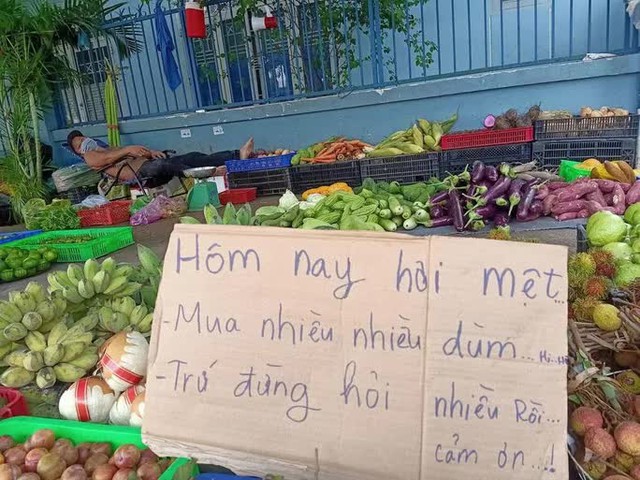 Hôm nay hơi mệt...
- Mua nhiều nhiều dùm... Hi..Hi
- Trứ đừng hỏi nhiều Rồi...
cảm ơn...!